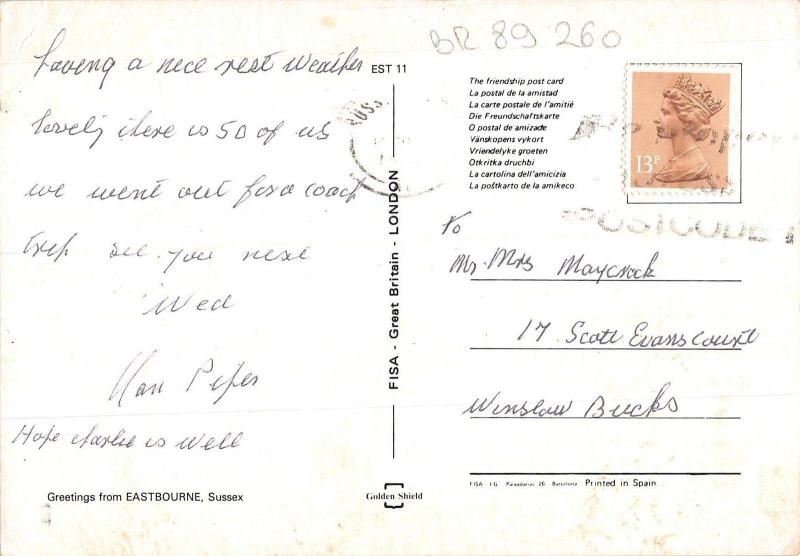 BR 89 260
having a nice rest Weather
lovely there is 50 of us
we went out for a coach
trip see you next
Wed
Pepes
Hope charlie is well
Greetings from EASTBOURNE, Sussex
EST 11
FISA - Great Britain - LONDON
Golden Shield
The friendship post card
La postal de la amistad
La carte postale de l'amitiè
Die Freundschaftskarte
O postal de amizade
Vänskopens vykort
Vriendelyke groeten
Otkritka druchbi
La cartolina dell'amicizia
La poŝtkarto de la amikeco
13P
POSTCODE
To
Mr. Mrs Maycrock
17 Scott Evans Court
Winslow Bucks
FISA I.G. Palaudarias 26 Barcelona Printed in Spain